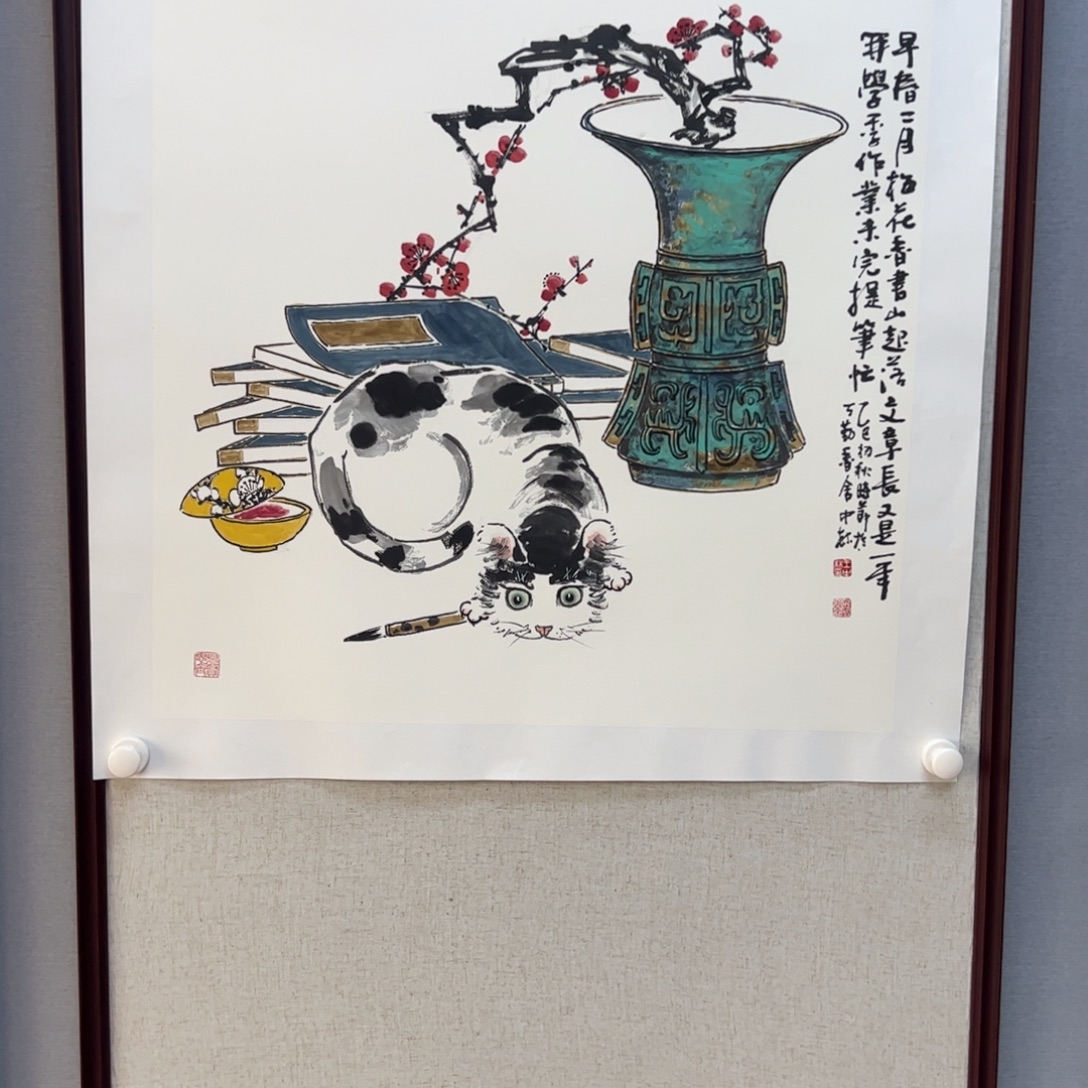 早春二月梅花香書山起落文章長又是一年
开學季作業未完提筆忙
乙巳初秋時節於
万勤書舍中